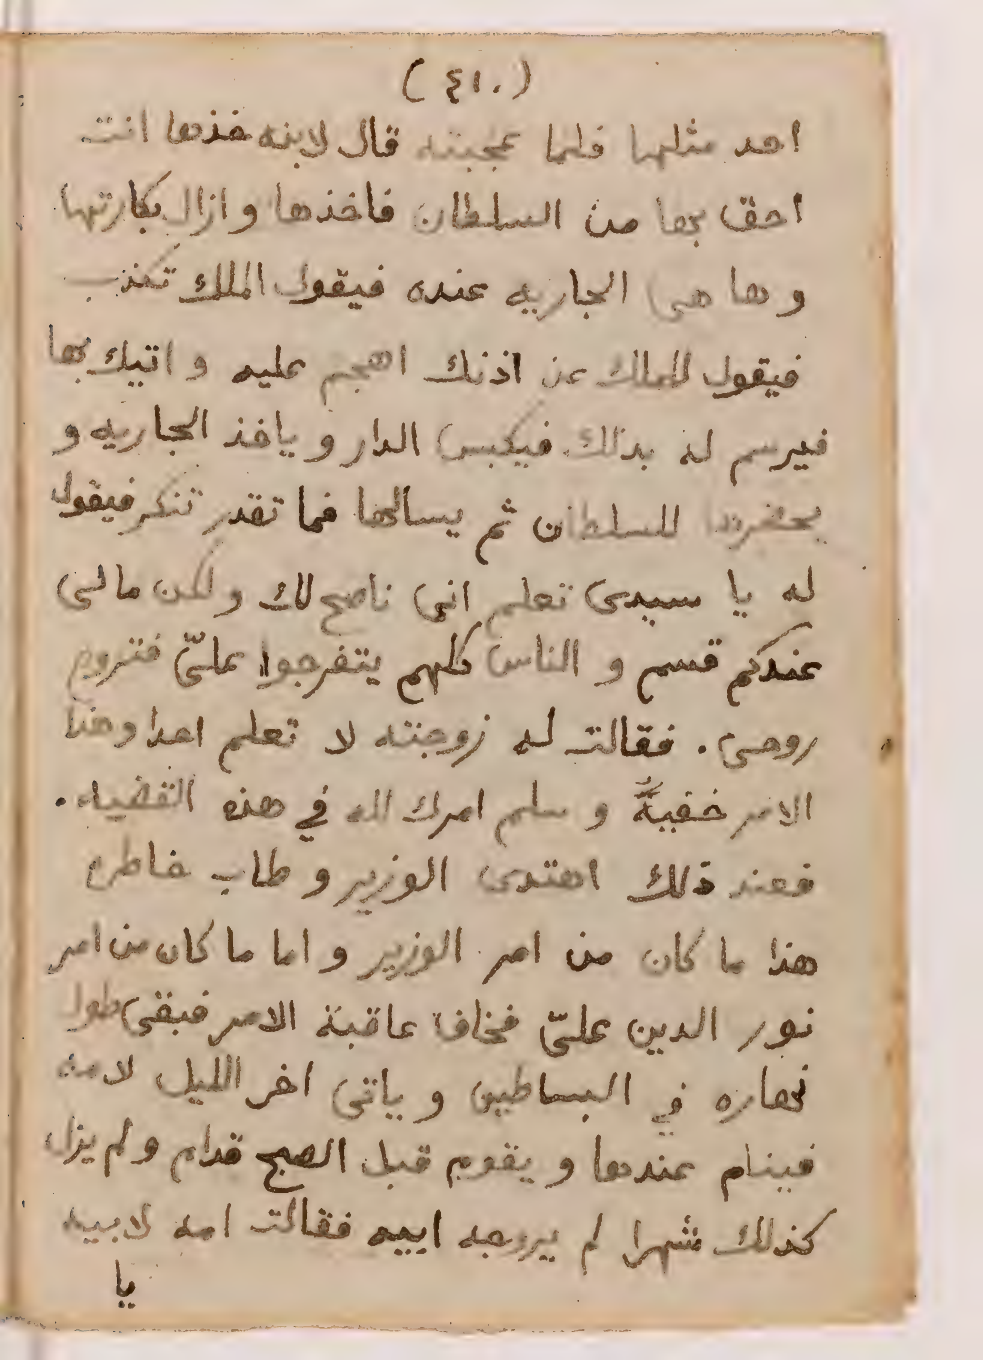 (٤١٠)
احد مثلها فلما عجبته قال لابنه خذها انت
احق بها من السلطان فاخذها و ازال بكارتها
و ها هى الجاريه عنده فيقول الملك تكذب
فيقول للملك عن اذنك اهجم عليه و اتيك بها
فيرسم له بذلك فيكبس الدار و ياخذ الجاريه و
يحضرها للسلطان ثم يسالها فما تقدر تنكر فيقول
له يا سيدى تعلم انى ناصح لك ولكن مالى
عندكم قسم و الناس كلهم يتفرجوا علىّ فتروح
روحى . فقالت له زوجته لا تعلم احدا وهذا
الامر خفيةً و سلم امرك لله في هذه القضيه .
فعند ذلك اهتدى الوزير و طاب خاطره
هذا ما كان من امر الوزير و اما ما كان من امر
نور الدين علىّ فخاف عاقبة الامر فبقى طول
نهاره في البساطين و ياتى اخر الليل لامه
فينام عندها و يقوم قبل الصبح قدام و لم يزل
كذلك شهرا لم يروجه ابيه فقالت امه لابيه
يا